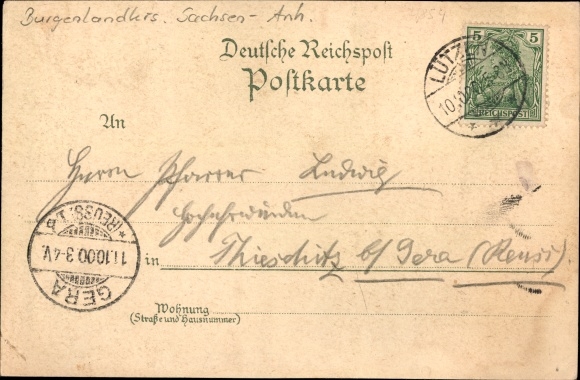 Burgenlandkrs. Sachsen-Anh.
Deutsche Reichspost
Postkarte
5 5
REICHSPOST
LÜTZEN
10.
An
Herrn Pfarrer Ludwig
Hochehrwürden
in Thieschitz b/Gera (Reuss).
*REUSS. J. L.
11.10.00 3-4V.
GERA
Wohnung
(Straße und Hausnummer)